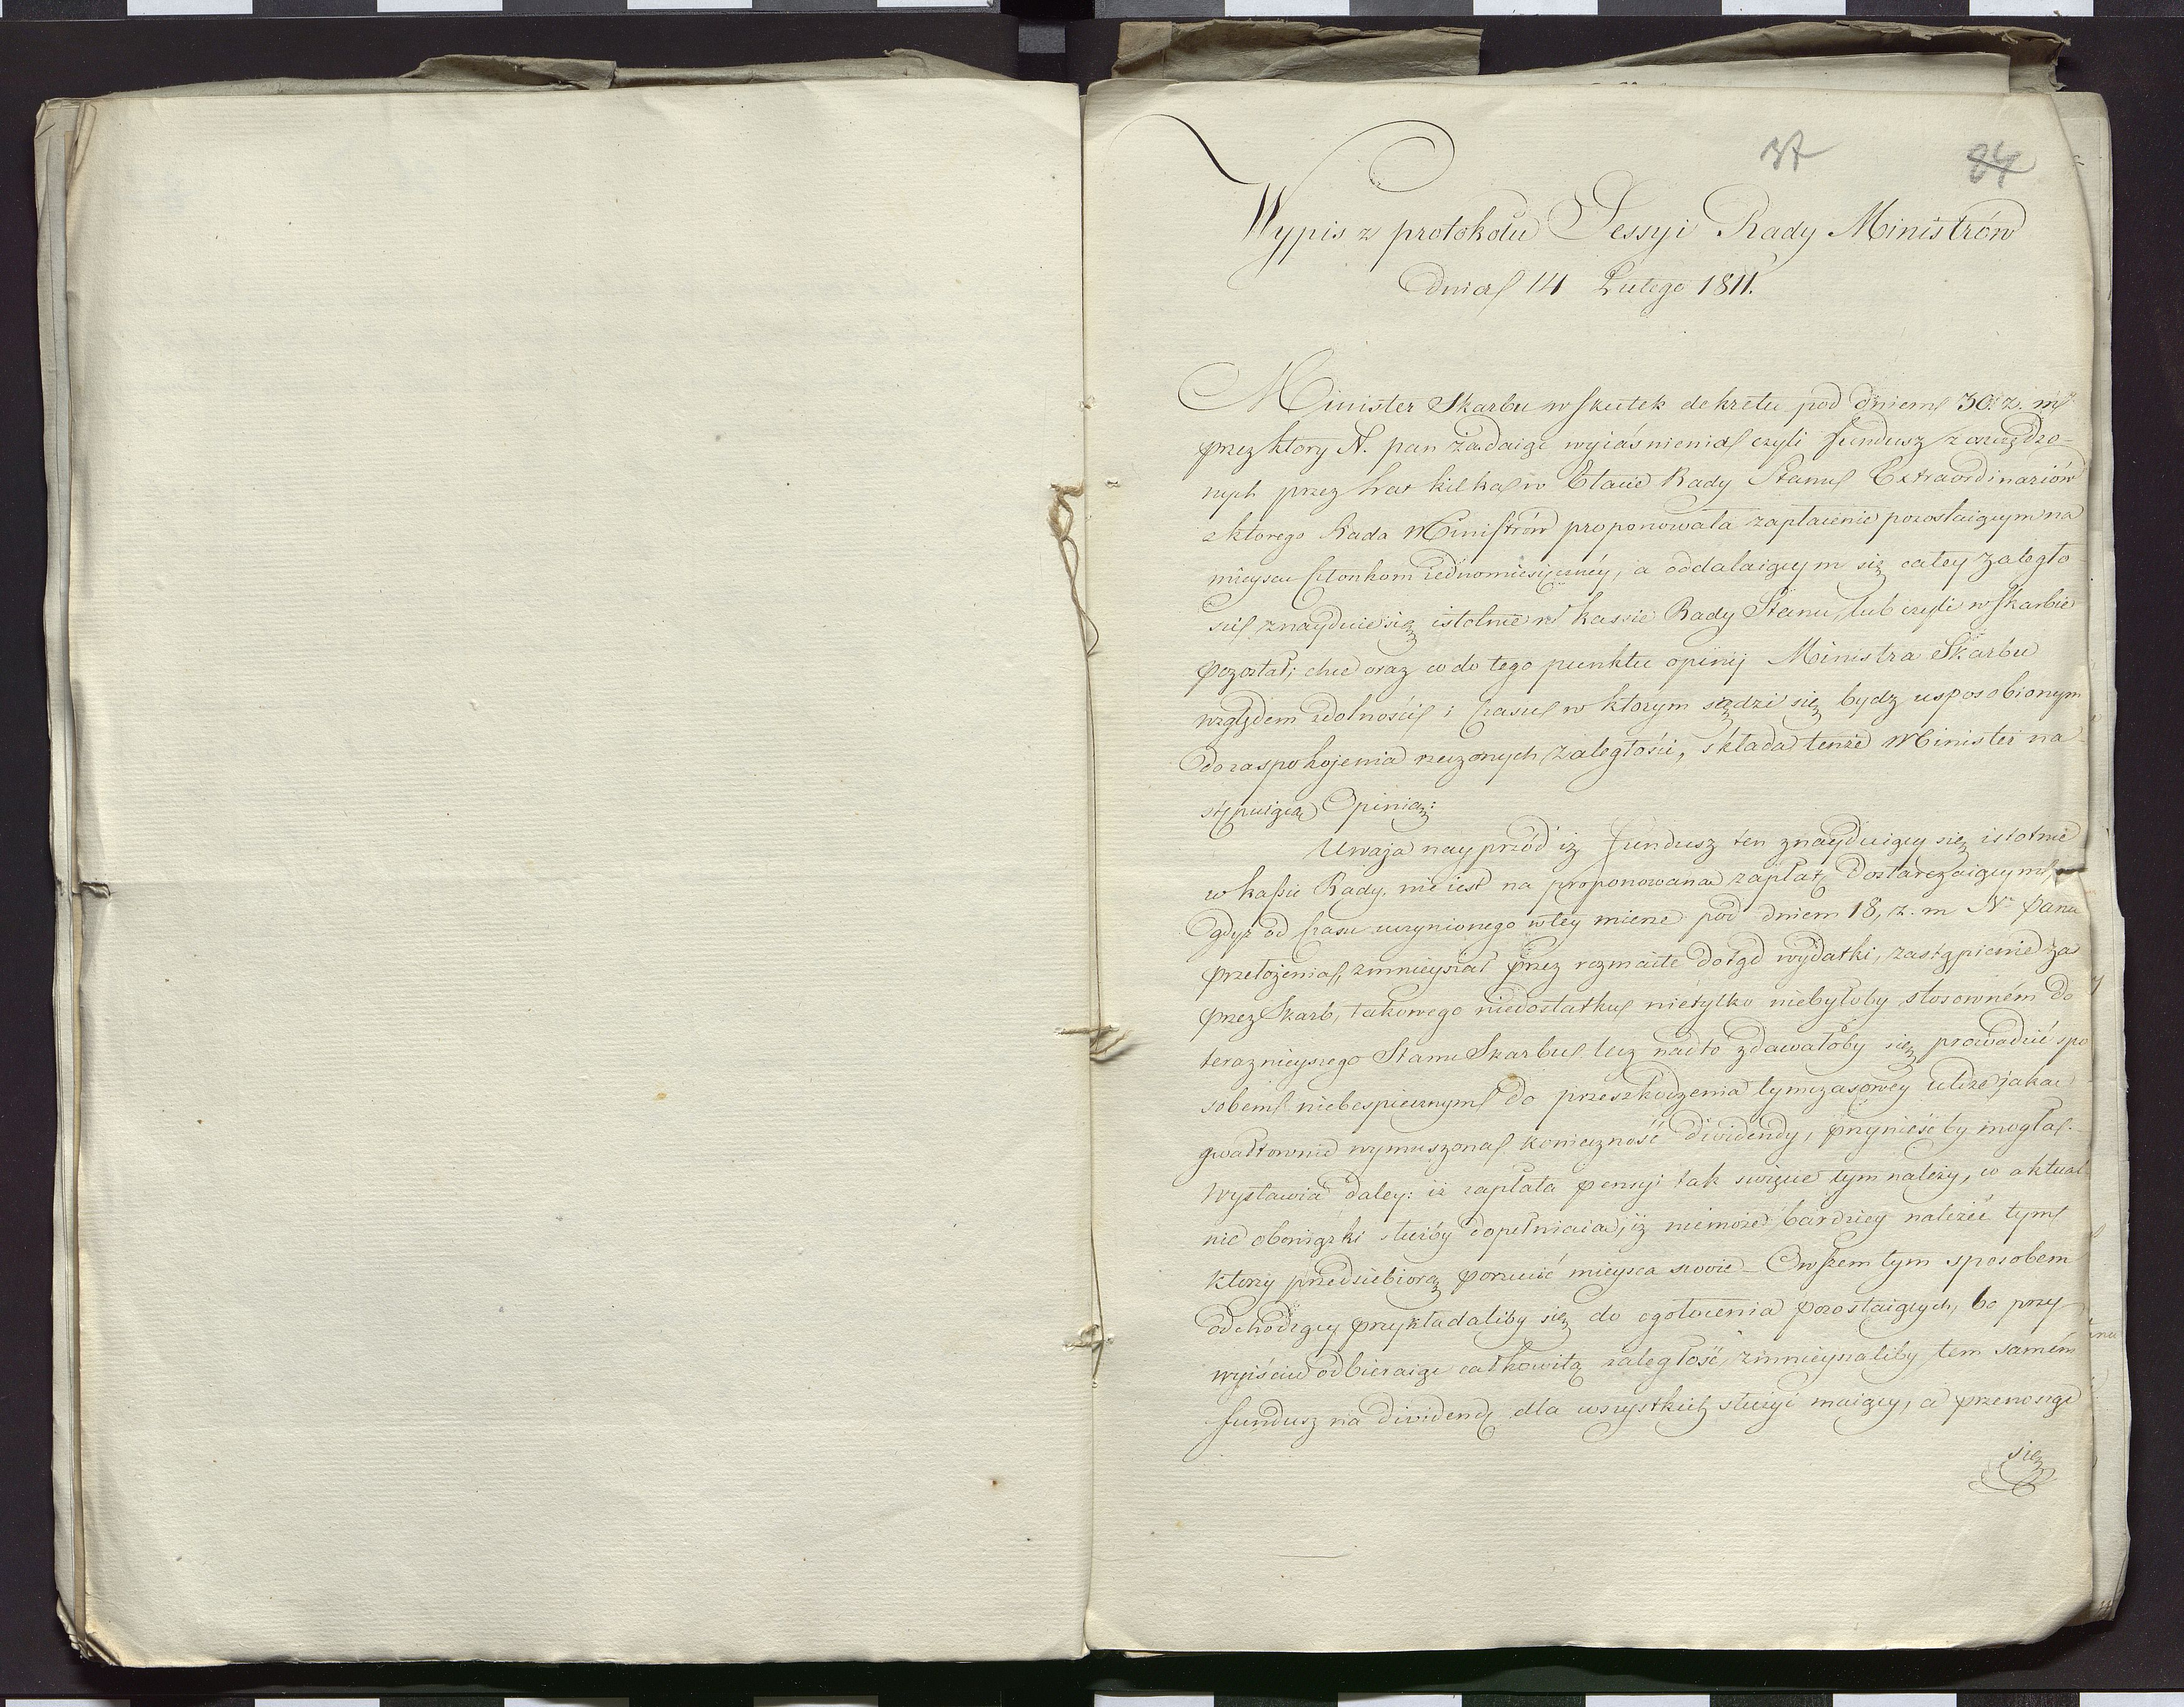 37 84
Wypis z protokołu Sessyi Rady Ministrów
Dnia 14 Lutego 1811.
Minister Skarbu w skutek dekretu pod dniem 30. z. m.
przez ktory N. pan żądaiąc wyiaśnienia czyli fundusz zoszczędzo-
nych przez lat kilka w Etacie Rady Stanu Extraordinariów
z ktorego Rada Ministrów proponowała zapłacenie pozostaiącym na
mieyscu Członkom iednomiesięczney, a oddalaiącym się całey zaległo
ści znayduie się istotnie w kassie Rady Stanu, lub czyli w skarbie
pozostał; chce oraz co do tego punktu opinij Ministra Skarbu
względem zdolności i czasu w którym sądzi się bydz usposobionym
do zaspokojenia rzeczonych zaległości, składa tenże Minister na-
stępuiącą Opinią:
Uważa nayprzód iż fundusz ten znayduiący się istotnie
w kassie Rady. nie iest na proponowaną zapłatę dostarczaiącym,
gdyż od czasu uczynionego w tey mierze pod dniem 18, z. m N. Panu
przełożenia, zmnieyszał przez rozmaite dotąd wydatki, zastąpienie zaś
przez Skarb, takowego niedostatku nietylko niebyłoby stosowném do
teraznieyszego Stanu Skarbu lecz nadto zdawałoby się prowadzić spo
sobem niebespiecznym do przeszkodzenia tymczasowey uldze jaką
gwałtownie wymuszona konieczność dividendy, przynieść by mogła.
Wystawia daley: iż zapłata pensyi tak święcie tym należy, co aktual-
nie obowiązki służby dopełniaią, iż niemoże bardziey należeć tym
ktorzy przedsiebiorą porzucić mieysca swoie_ Owszem tym sposobem
odchodzący przykładaliby się do ogołocenia pozostaiących, bo przy
wyiściu odbieraiąc całkowitą zaległość, zmnieyszaliby tem samém
fundusz na dividendę dla wszystkich służyć maiący, a przenosząc
się